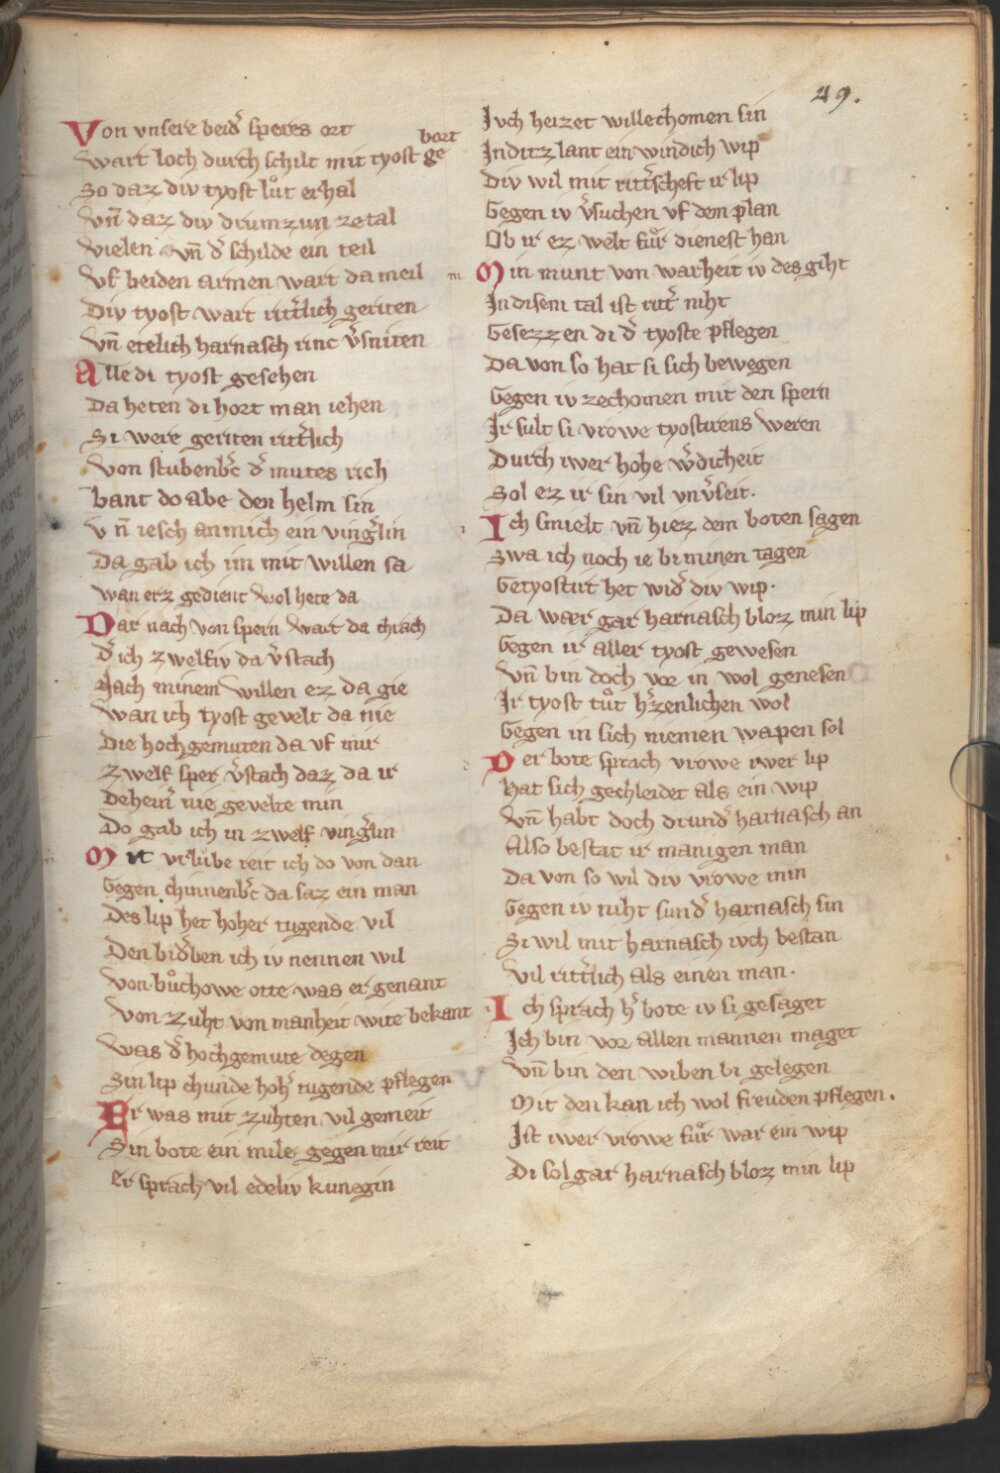 49.
Von vnsere beid̾ speres ort
wart loch durch schilt mit tyost ge
bort
So daz div tyost lůt erhal
vn̄ daz div drumzun zetal
vielen vn̄ d̾ schilde ein teil
vf beiden armen wart da meil
Div tyost wart ritt̾lich geriten
vn̄ etelich harnasch rinc v̾sniten
Alle di tyost gesehen
Da heten di hort man iehen
Si were geriten ritt̾lich
von stubenb̾c d̾ mutes rich
bant do abe den helm sin
vn̄ iesch an mich ein ving̾lin
Da gab ich im mit willen sa
wan erz gedient wol hete da
Dar nach von spern wart da chrach
d̾ ich zwelfiv da v̾stach
Nach minem willen ez da gie
wan ich tyost gevelt da nie
Die hochgemuten da vf mir
zwelf sper v̾stach daz da ir
Dehein̾ nie gevelte min
Do gab ich in zwelf ving̾lin
Mit vrlůbe reit ich do von dan
Gegen chinnenb̾c da saz ein man
Des lip het hoher tugende vil
Den bid̾ben ich iv nennen wil
von bůchowe otte was er genant
von zuht von manheit wite bekant
was d̾ hochgemute degen
Sin lip chunde hoh̾ tugende pflegen
Er was mit zuhten vil gemeit
Sin bote ein mile gegen mir reit
Er sprach vil edeliv kunegin
Ivch heizet willechomen sin
In ditz lant ein windich wip
Div wil mit ritt̾scheft ir lip
Gegen iv v̾suchen vf dem plan
Ob ir ez welt fůr dienest han
Min munt von warheit iv des giht
In disem tal ist ritt̾ niht
Gesezzen di d̾ tyoste pflegen
Da von so hat si sich bewegen
Gegen iv zechomen mit den spern
Ir sult si vrowe tyostirens weren
Durch iwer hohe w̾dicheit
Sol ez ir sin vil vnv̾seit.
Ich smielt vn̄ hiez dem boten sagen
Swa ich noch ie bi minen tagen
Getyostirt het wid̾ div wip.
Da wær gar harnasch bloz min lip
Gegen ir aller tyost gewesen
vn̄ bin doch vor in wol genesen
Ir tyost tůt h̾zenlichen wol
Gegen in sich niemen wapen sol
Der bote sprach vrowe iwer lip
Hat sich gechleidet als ein wip
vn̄ habt doch drund̾ harnasch an
Also bestat ir manigen man
Da von so wil div vrowe min
Gegen iv niht sund̾ harnasch sin
Si wil mit harnasch ivch bestan
vil ritt̾lich als einen man.
Ich sprach h̾ bote iv si gesaget
Ich bin vor allen mannen maget
vn̄ bin den wiben bi gelegen
Mit den kan ich wol freuden pflegen.
Ist iwer vrowe fůr war ein wip
Di sol gar harnasch bloz min lip